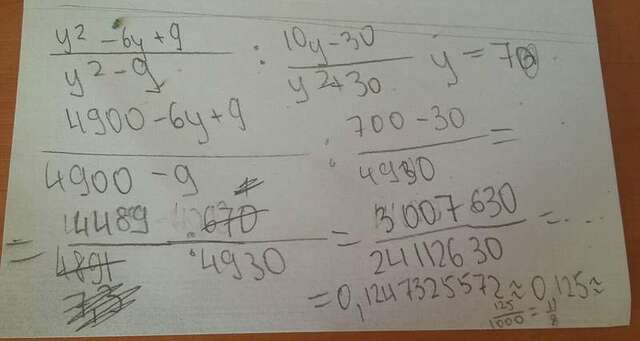 y² - 6y + 9 / y² - 9 : 10y - 30 / y² + 30 y = 70
4900 - 6y + 9 / 4900 - 9 : 700 - 30 / 4930 =
= 4489 / 4891 : 670 / 4930 = 3007630 / 24112630 = ...
= 0,1247325572 ≈ 0,125 ≈
125 / 1000 =